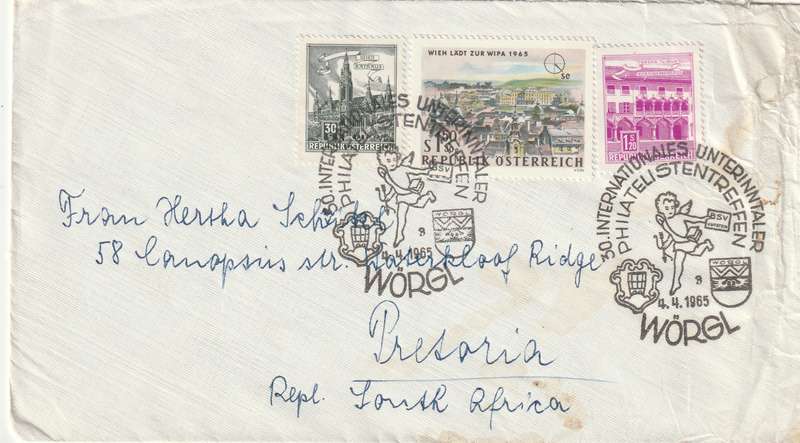 WIEN
RATHAUS
30
REPUBLIK ÖSTERREICH
WIEN LÄDT ZUR WIPA 1965
SO
REPUBLIK ÖSTERREICH
1 S 20
REPUBLIK ÖSTERREICH
30. INTERNATIONALES UNTERINNTALER
PHILATELISTENTREFFEN
BSV
WÖRGL
4.4.1965
WÖRGL
30. INTERNATIONALES UNTERINNTALER
PHILATELISTENTREFFEN
BSV
KUFSTEIN
WÖRGL
4.4.1965
WÖRGL
Frau Hertha
58 Canopus str. Waterkloof Ridge
Pretoria
Repl. South Africa